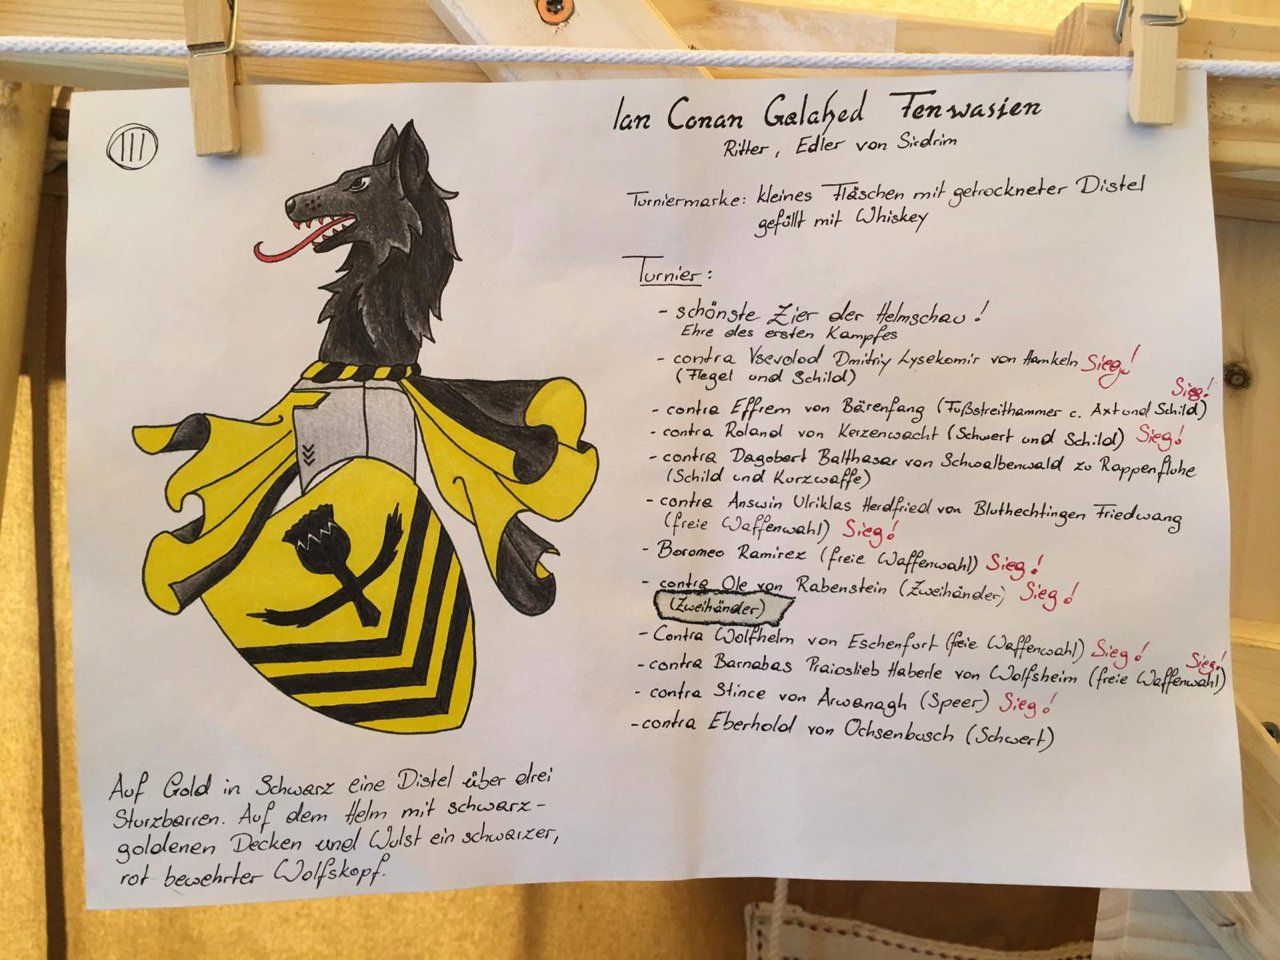 III
Ian Conan Galahed Fenwasien
Ritter, Edler von Sirdrim
Turniermarke: kleines Fläschen mit getrockneter Distel
gefüllt mit Whiskey
Turnier:
- schönste Zier der Helmschau!
Ehre des ersten Kampfes
- contra Vsevolod Dmitriy Lysekomir von Hamkeln Sieg!
(Flegel und Schild)
Sieg!
- contra Effrem von Bärenfang (Fußstreithammer c. Axt und Schild)
- contra Roland von Kerzenwacht (Schwert und Schild) Sieg!
- contra Dagobert Balthasar von Schwalbenwald zu Rappenfluhe
(Schild und Kurzwaffe)
- contra Answin Ulriklas Herdfried von Bluthechtingen Friedwang
(freie Waffenwahl) Sieg!
- Boromeo Ramirez (freie Waffenwahl) Sieg!
- contra Ole von Rabenstein (Zweihänder) Sieg!
(Zweihänder)
- Contra Wolfhelm von Eschenfurt (freie Waffenwahl) Sieg!
Sieg!
- contra Barnabas Praioslieb Haberle von Wolfsheim (freie Waffenwahl)
- contra Stince von Arwanagh (Speer) Sieg!
- contra Eberhold von Ochsenbusch (Schwert)
Auf Gold in Schwarz eine Distel über drei
Sturzbarren. Auf dem Helm mit schwarz-
goldenen Decken und Wulst ein schwarzer,
rot bewehrter Wolfskopf.